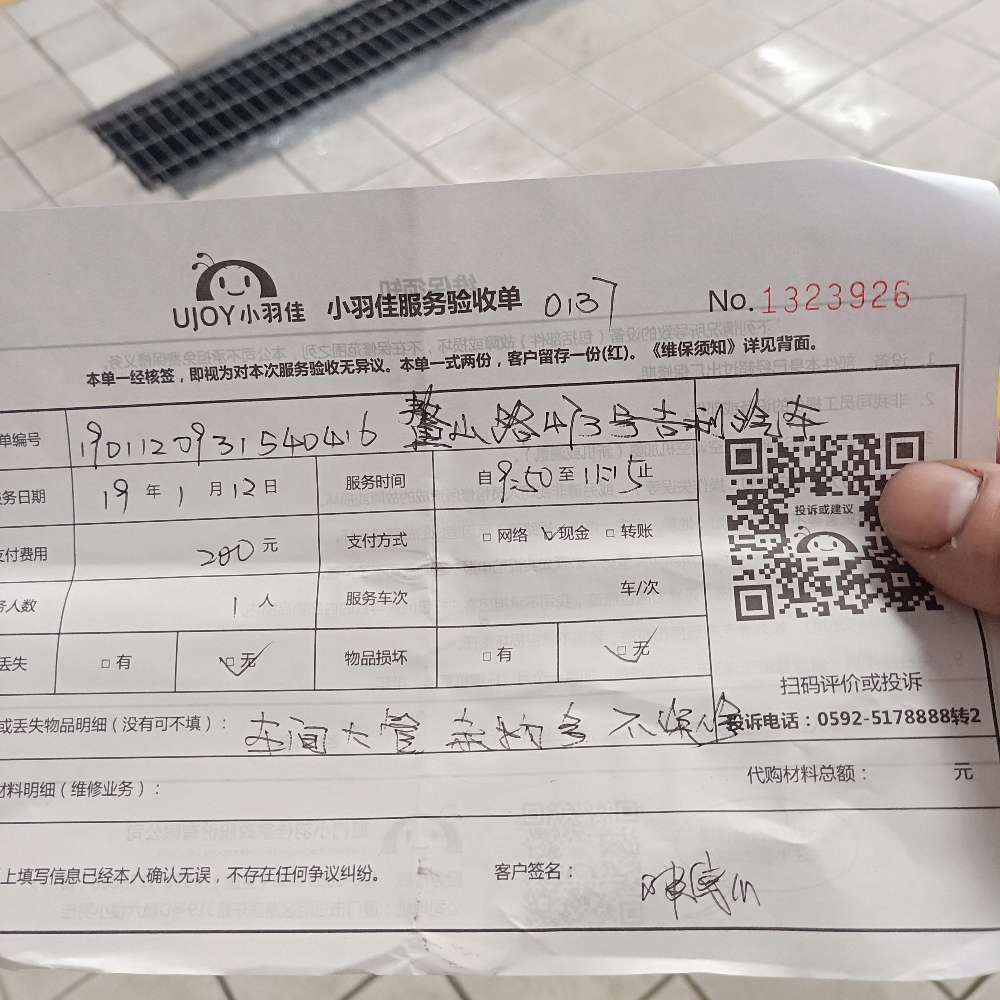 UJOY小羽佳 小羽佳服务验收单 0137 No.1323926
本单一经核签，即视为对本次服务验收无异议。本单一式两份，客户留存一份(红)。《维保须知》详见背面。
单编号 190112093154 0416 鳌山路473号吉利汽车
务日期 19 年 1 月 12 日 服务时间 自 9:50 至 11:15 止
投诉或建议
支付费用 200 元 支付方式 □ 网络 ☑ 现金 □ 转账
务人数 1 人 服务车次 车/次
丢失 □ 有 ☑ 无 物品损坏 □ 有 ☑ 无
扫码评价或投诉
或丢失物品明细（没有可不填）： 车间大管 杂物多 不保
投诉电话：0592-5178888转2
材料明细（维修业务）： 代购材料总额： 元
上填写信息已经本人确认无误，不存在任何争议纠纷。 客户签名：